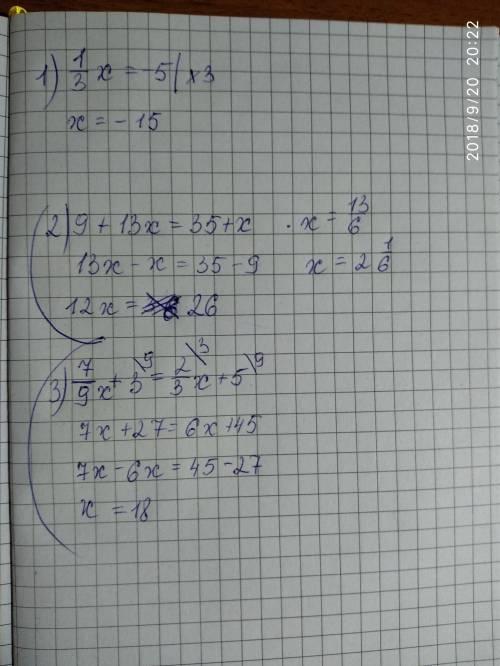 1) 1/3 x = -5 | ×3
x = - 15
2) 9 + 13x = 35 + x
13x - x = 35 - 9
12x = 26
x = 13/6
x = 2 1/6
3) 7/9 x + 3 \9 = 2/3 \3 x + 5 \9
7x + 27 = 6x + 45
7x - 6x = 45 - 27
x = 18
2018/9/20 20:22